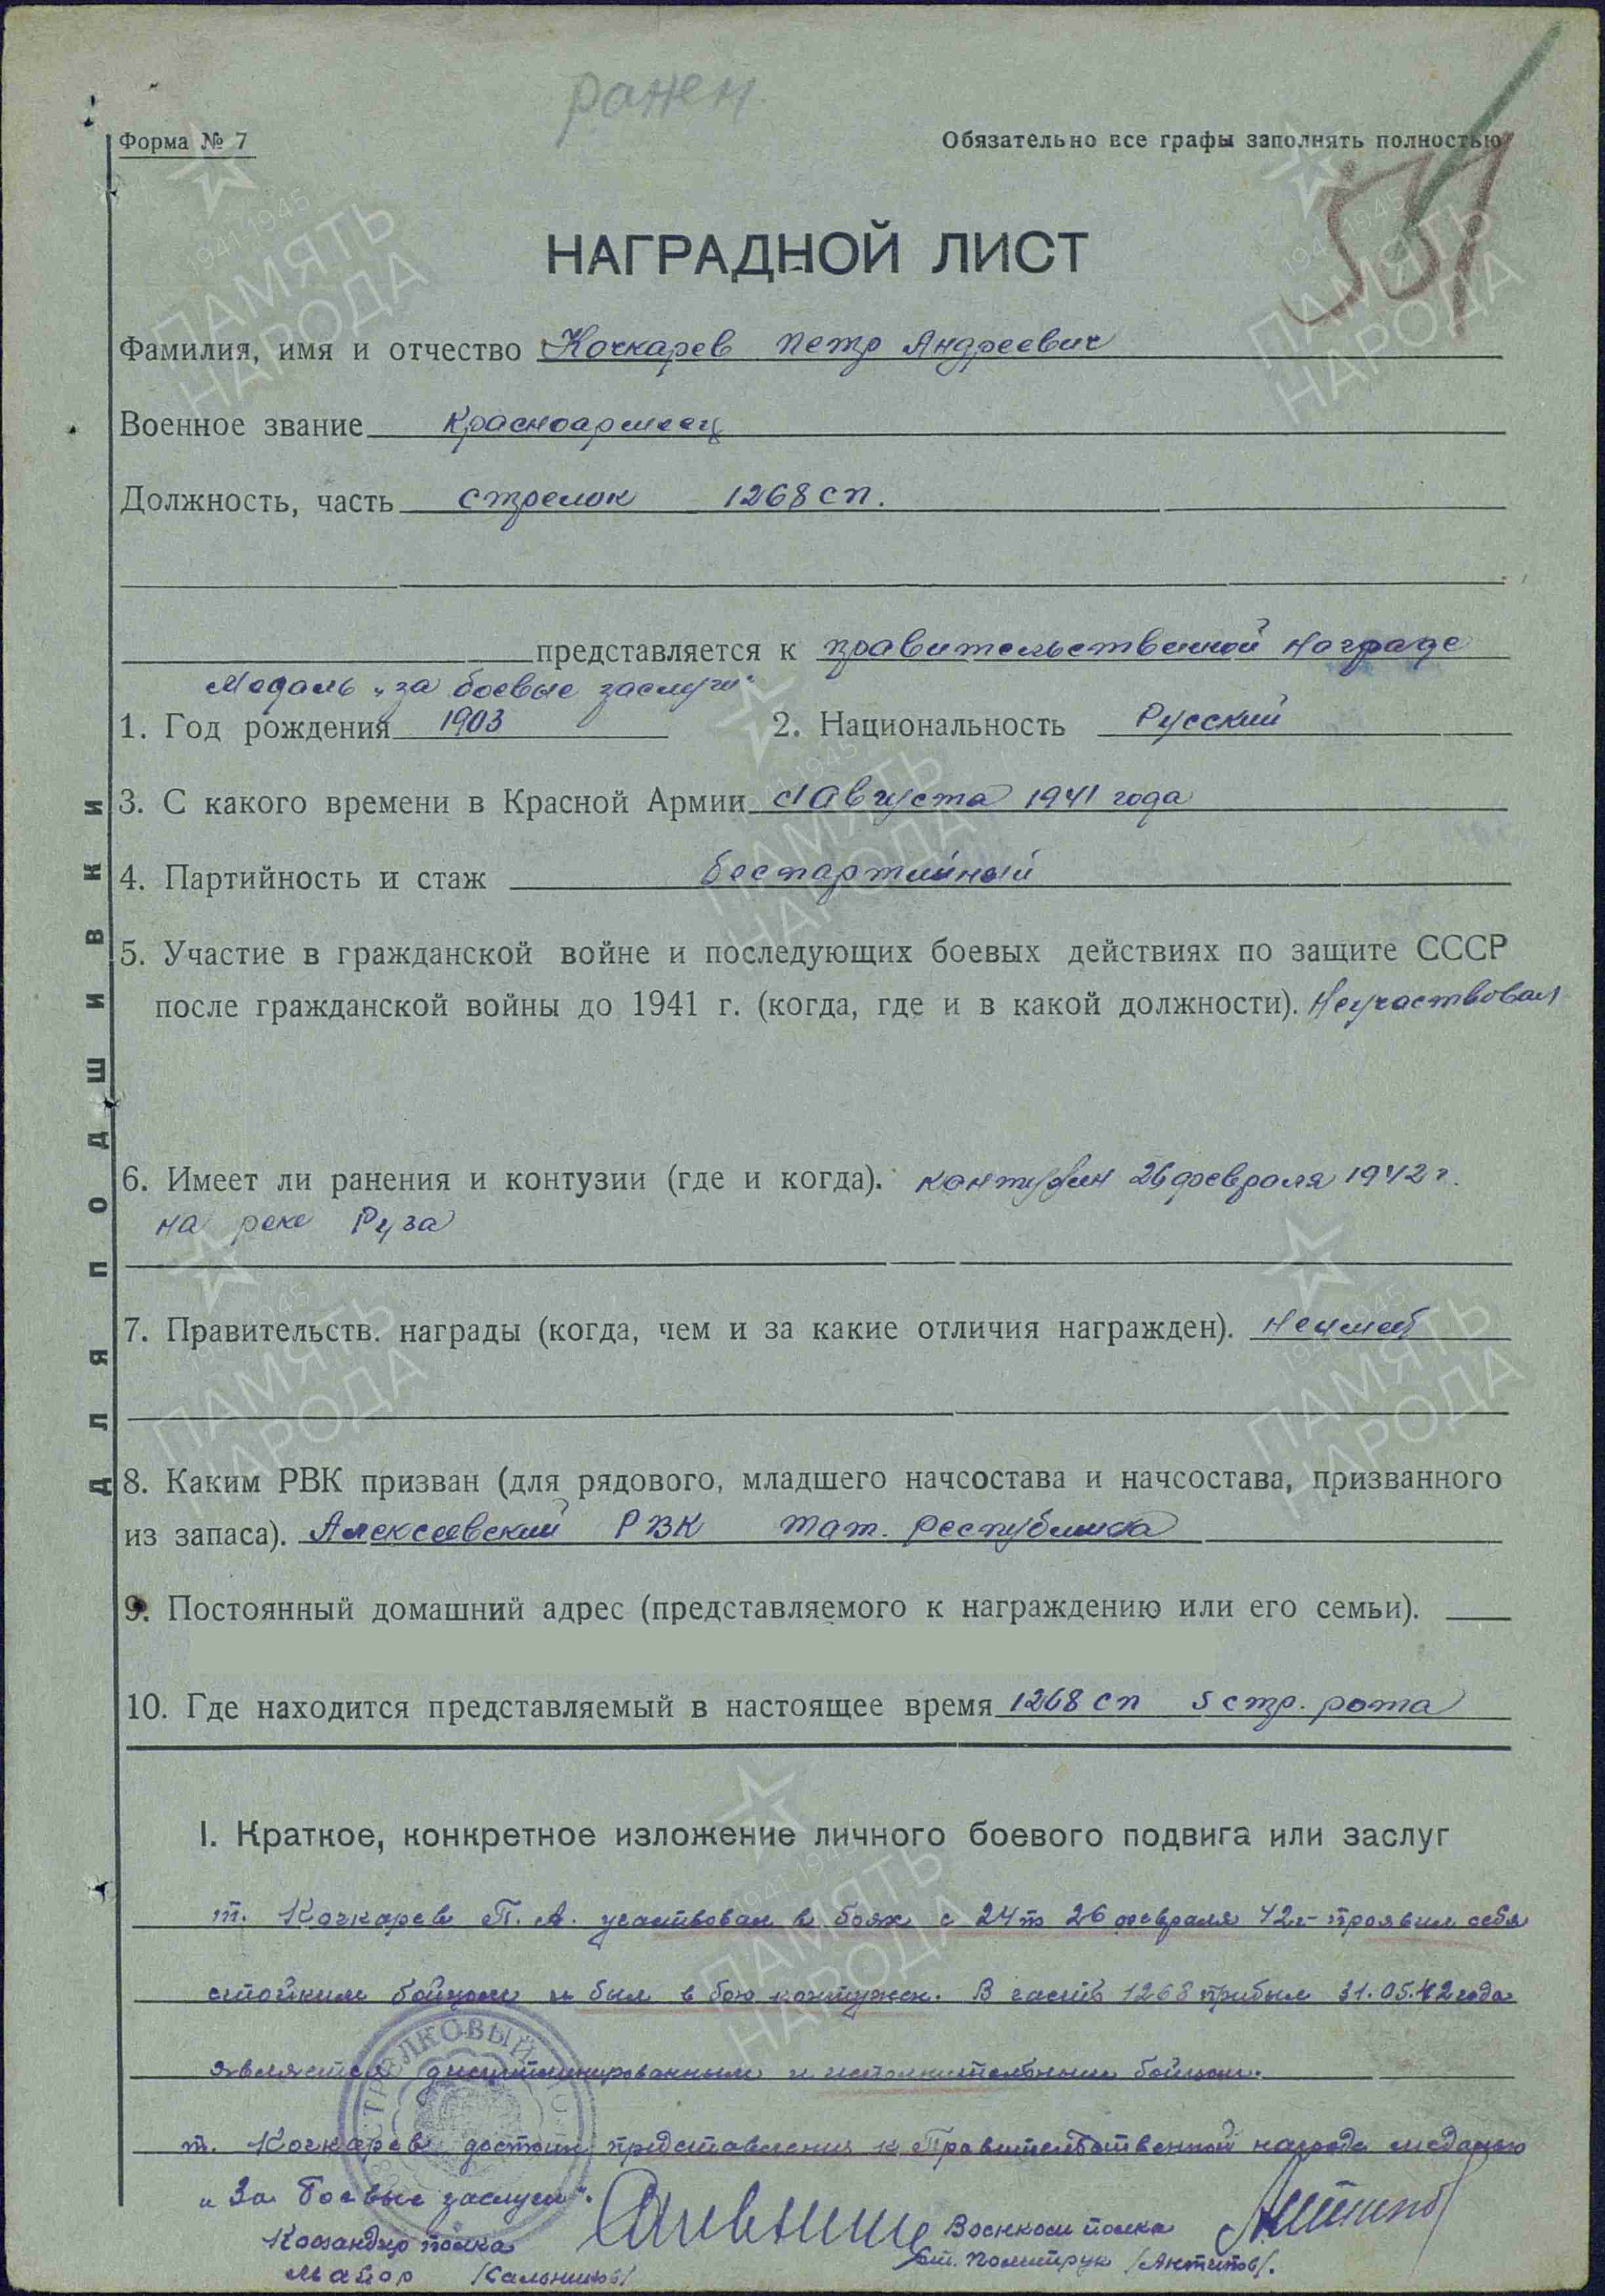 ранен
Форма № 7
Обязательно все графы заполнять полностью
НАГРАДНОЙ ЛИСТ
Фамилия, имя и отчество Кочкарев Петр Андреевич
Военное звание Красноармеец
Должность, часть стрелок 1268 сп.
представляется к правительственной награде
Медаль „за боевые заслуги"
1. Год рождения 1903 2. Национальность Русский
3. С какого времени в Красной Армии с 1 Августа 1941 года
4. Партийность и стаж беспартийный
5. Участие в гражданской войне и последующих боевых действиях по защите СССР
после гражданской войны до 1941 г. (когда, где и в какой должности). Неучаствовал
6. Имеет ли ранения и контузии (где и когда). контужен 26 февраля 1942 г.
на реке Руза
7. Правительств. награды (когда, чем и за какие отличия награжден). Неимеет
8. Каким РВК призван (для рядового, младшего начсостава и начсостава, призванного
из запаса). Алексеевский РВК Тат. республика
9. Постоянный домашний адрес (представляемого к награждению или его семьи).
10. Где находится представляемый в настоящее время 1268 сп 5 стр. рота
I. Краткое, конкретное изложение личного боевого подвига или заслуг
т. Кочкарев П. А. участвовал в боях с 24 п 26 февраля 42 г- проявил себя
стойким бойцом и был в бою контужен. В часть 1268 прибыл 31.05.42 года
является дисциплинированным и исполнительным бойцом.
т. Кочкарев достоин представления к Правительственной награде медалью
„За боевые заслуги".
Командир полка Военком полка
Майор /Сальников/ Ст. политрук /Антипов/.
Для подшивки
1941-1945
ПАМЯТЬ
НАРОДА